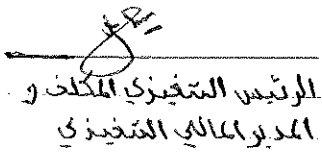 الرئيس التنفيذي المكلف و
المدير المالي التنفيذي